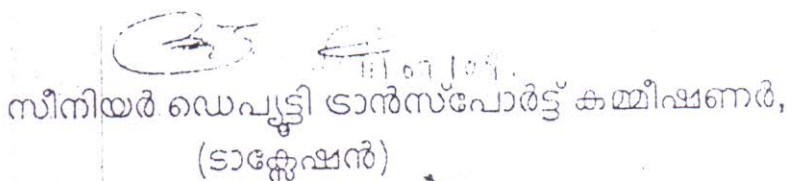 സീനിയർ ഡെപ്യൂട്ടി ട്രാൻസ്പോർട്ട് കമ്മീഷണർ,
(ടാക്സേഷൻ)